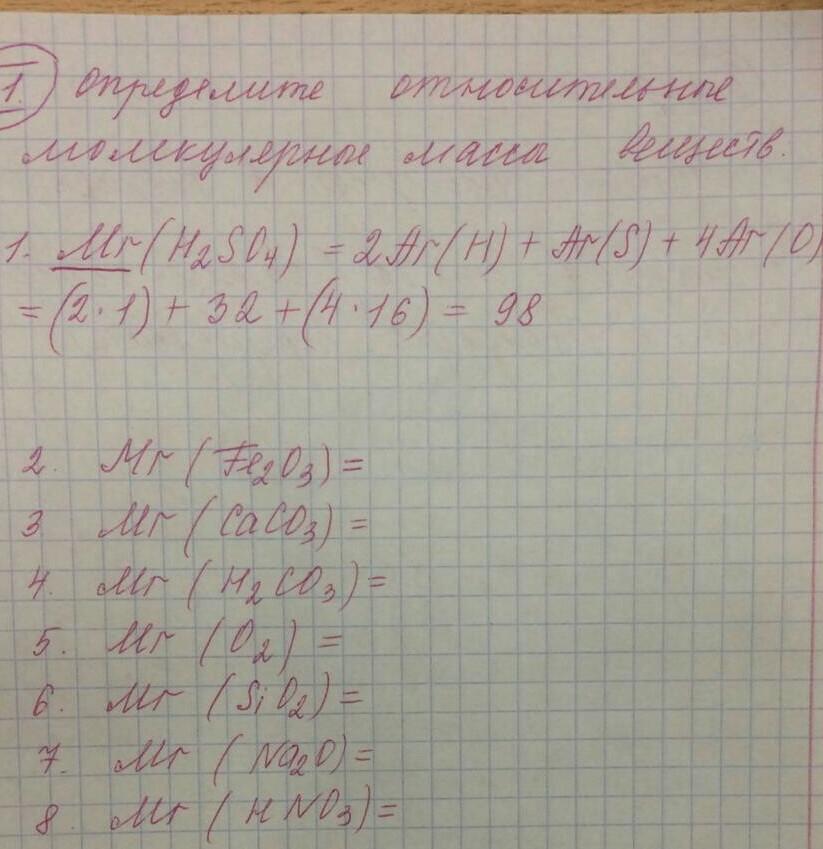 1. Определите относительные
молекулярные массы веществ.
1. Mr(H₂SO₄) = 2Ar(H) + Ar(S) + 4Ar(O)
= (2·1) + 32 + (4·16) = 98
2. Mr (Fe₂O₃) =
3 Mr (CaCO₃) =
4. Mr (H₂CO₃) =
5. Mr (O₂) =
6. Mr (SiO₂) =
7. Mr (Na₂O) =
8. Mr (HNO₃) =